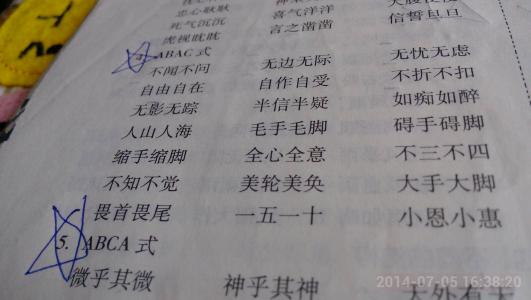 忠心耿耿
死气沉沉 喜气洋洋
虎视眈眈 言之凿凿 信誓旦旦
ABAC 式
不闻不问 无边无际 无忧无虑
自由自在 自作自受 不折不扣
无影无踪 半信半疑 如痴如醉
人山人海 毛手毛脚 碍手碍脚
缩手缩脚 全心全意 不三不四
不知不觉 美轮美奂 大手大脚
畏首畏尾 一五一十 小恩小惠
5. ABCA 式
微乎其微 神乎其神
2014-07-05 16:38:20